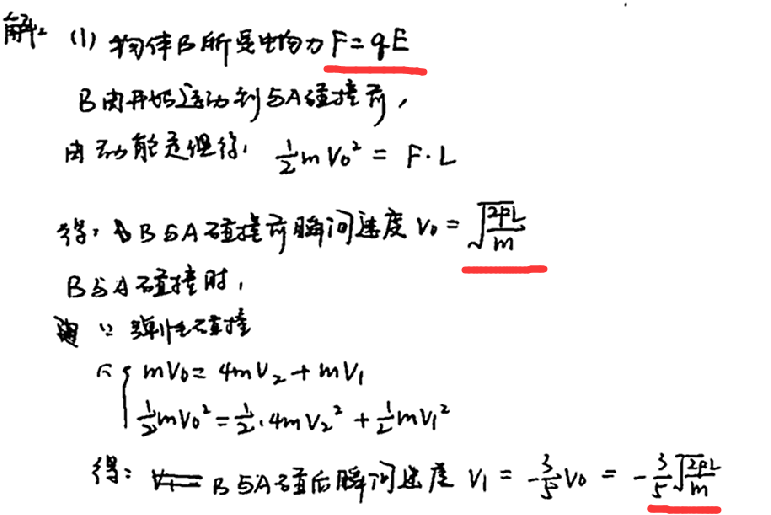 解: (1) 物体B所受电场力 F=qE
B由开始运动到与A碰撞前,
由动能定理得, ½mV₀² = F·L
得, B与A碰撞前瞬间速度 V₀ = √(2FL/m)
B与A碰撞时,
∵ 弹性碰撞
∴ { mV₀ = 4mV₂ + mV₁
½mV₀² = ½·4mV₂² + ½mV₁²
得: B与A碰后瞬间速度 V₁ = -3/5V₀ = -3/5√(2FL/m)